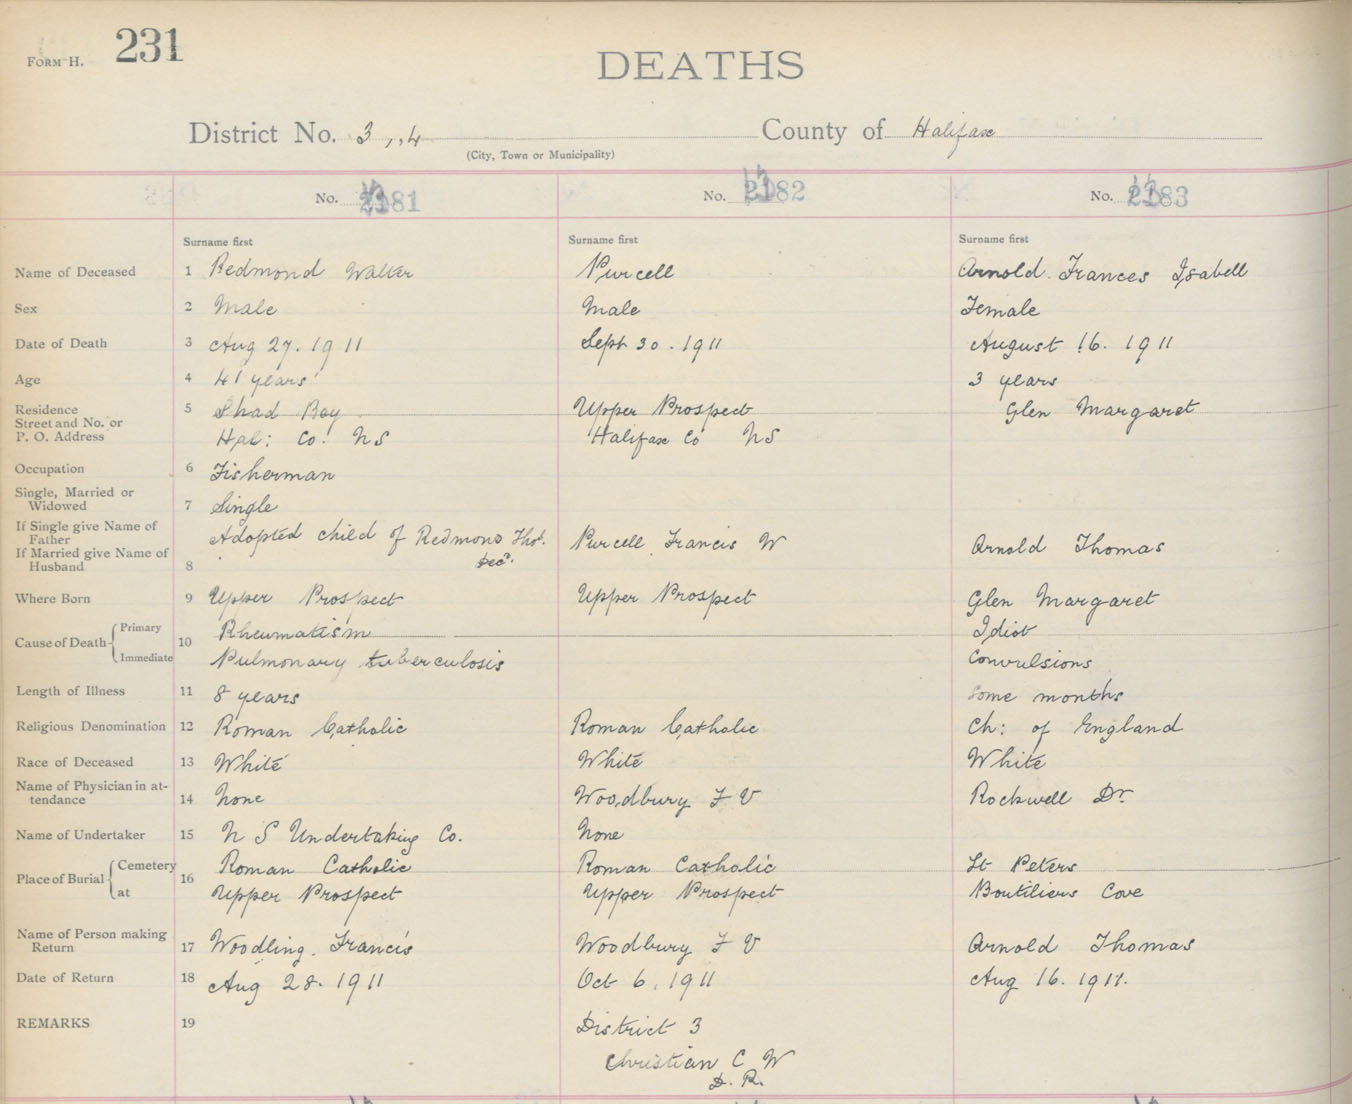 FORM H. 231
DEATHS
District No. 3, , 4 County of Halifax
(City, Town or Municipality)
No. 2181 No. 2182 No. 2183
Surname first Surname first Surname first
Name of Deceased 1 Redmond Walter Purcell Arnold. Frances Isabell
Sex 2 Male Male Female
Date of Death 3 Aug 27. 1911 Sept 30. 1911 August 16. 1911
Age 4 41 years 3 years
Residence 5 Shad Bay Upper Prospect Glen Margaret
Street and No. or
P. O. Address Hal: Co. NS Halifax Co NS
Occupation 6 Fisherman
Single, Married or
Widowed 7 Single
If Single give Name of
Father Adopted child of Redmond Thos. Purcell Francis W Arnold Thomas
If Married give Name of
Husband 8 Decd.
Where Born 9 Upper Prospect Upper Prospect Glen Margaret
Cause of Death Primary 10 Rheumatism Idiot
Immediate Pulmonary tuberculosis Convulsions
Length of Illness 11 8 years Some months
Religious Denomination 12 Roman Catholic Roman Catholic Ch: of England
Race of Deceased 13 White White White
Name of Physician in at-
tendance 14 None Woodbury F V Rockwell Dr.
Name of Undertaker 15 N S Undertaking Co. None
Place of Burial Cemetery 16 Roman Catholic Roman Catholic St Peters
at Upper Prospect Upper Prospect Boutiliers Cove
Name of Person making
Return 17 Woodling. Francis Woodbury F V Arnold Thomas
Date of Return 18 Aug 28. 1911 Oct 6, 1911 Aug 16. 1911.
REMARKS 19 District 3
Christian C W
D. R.